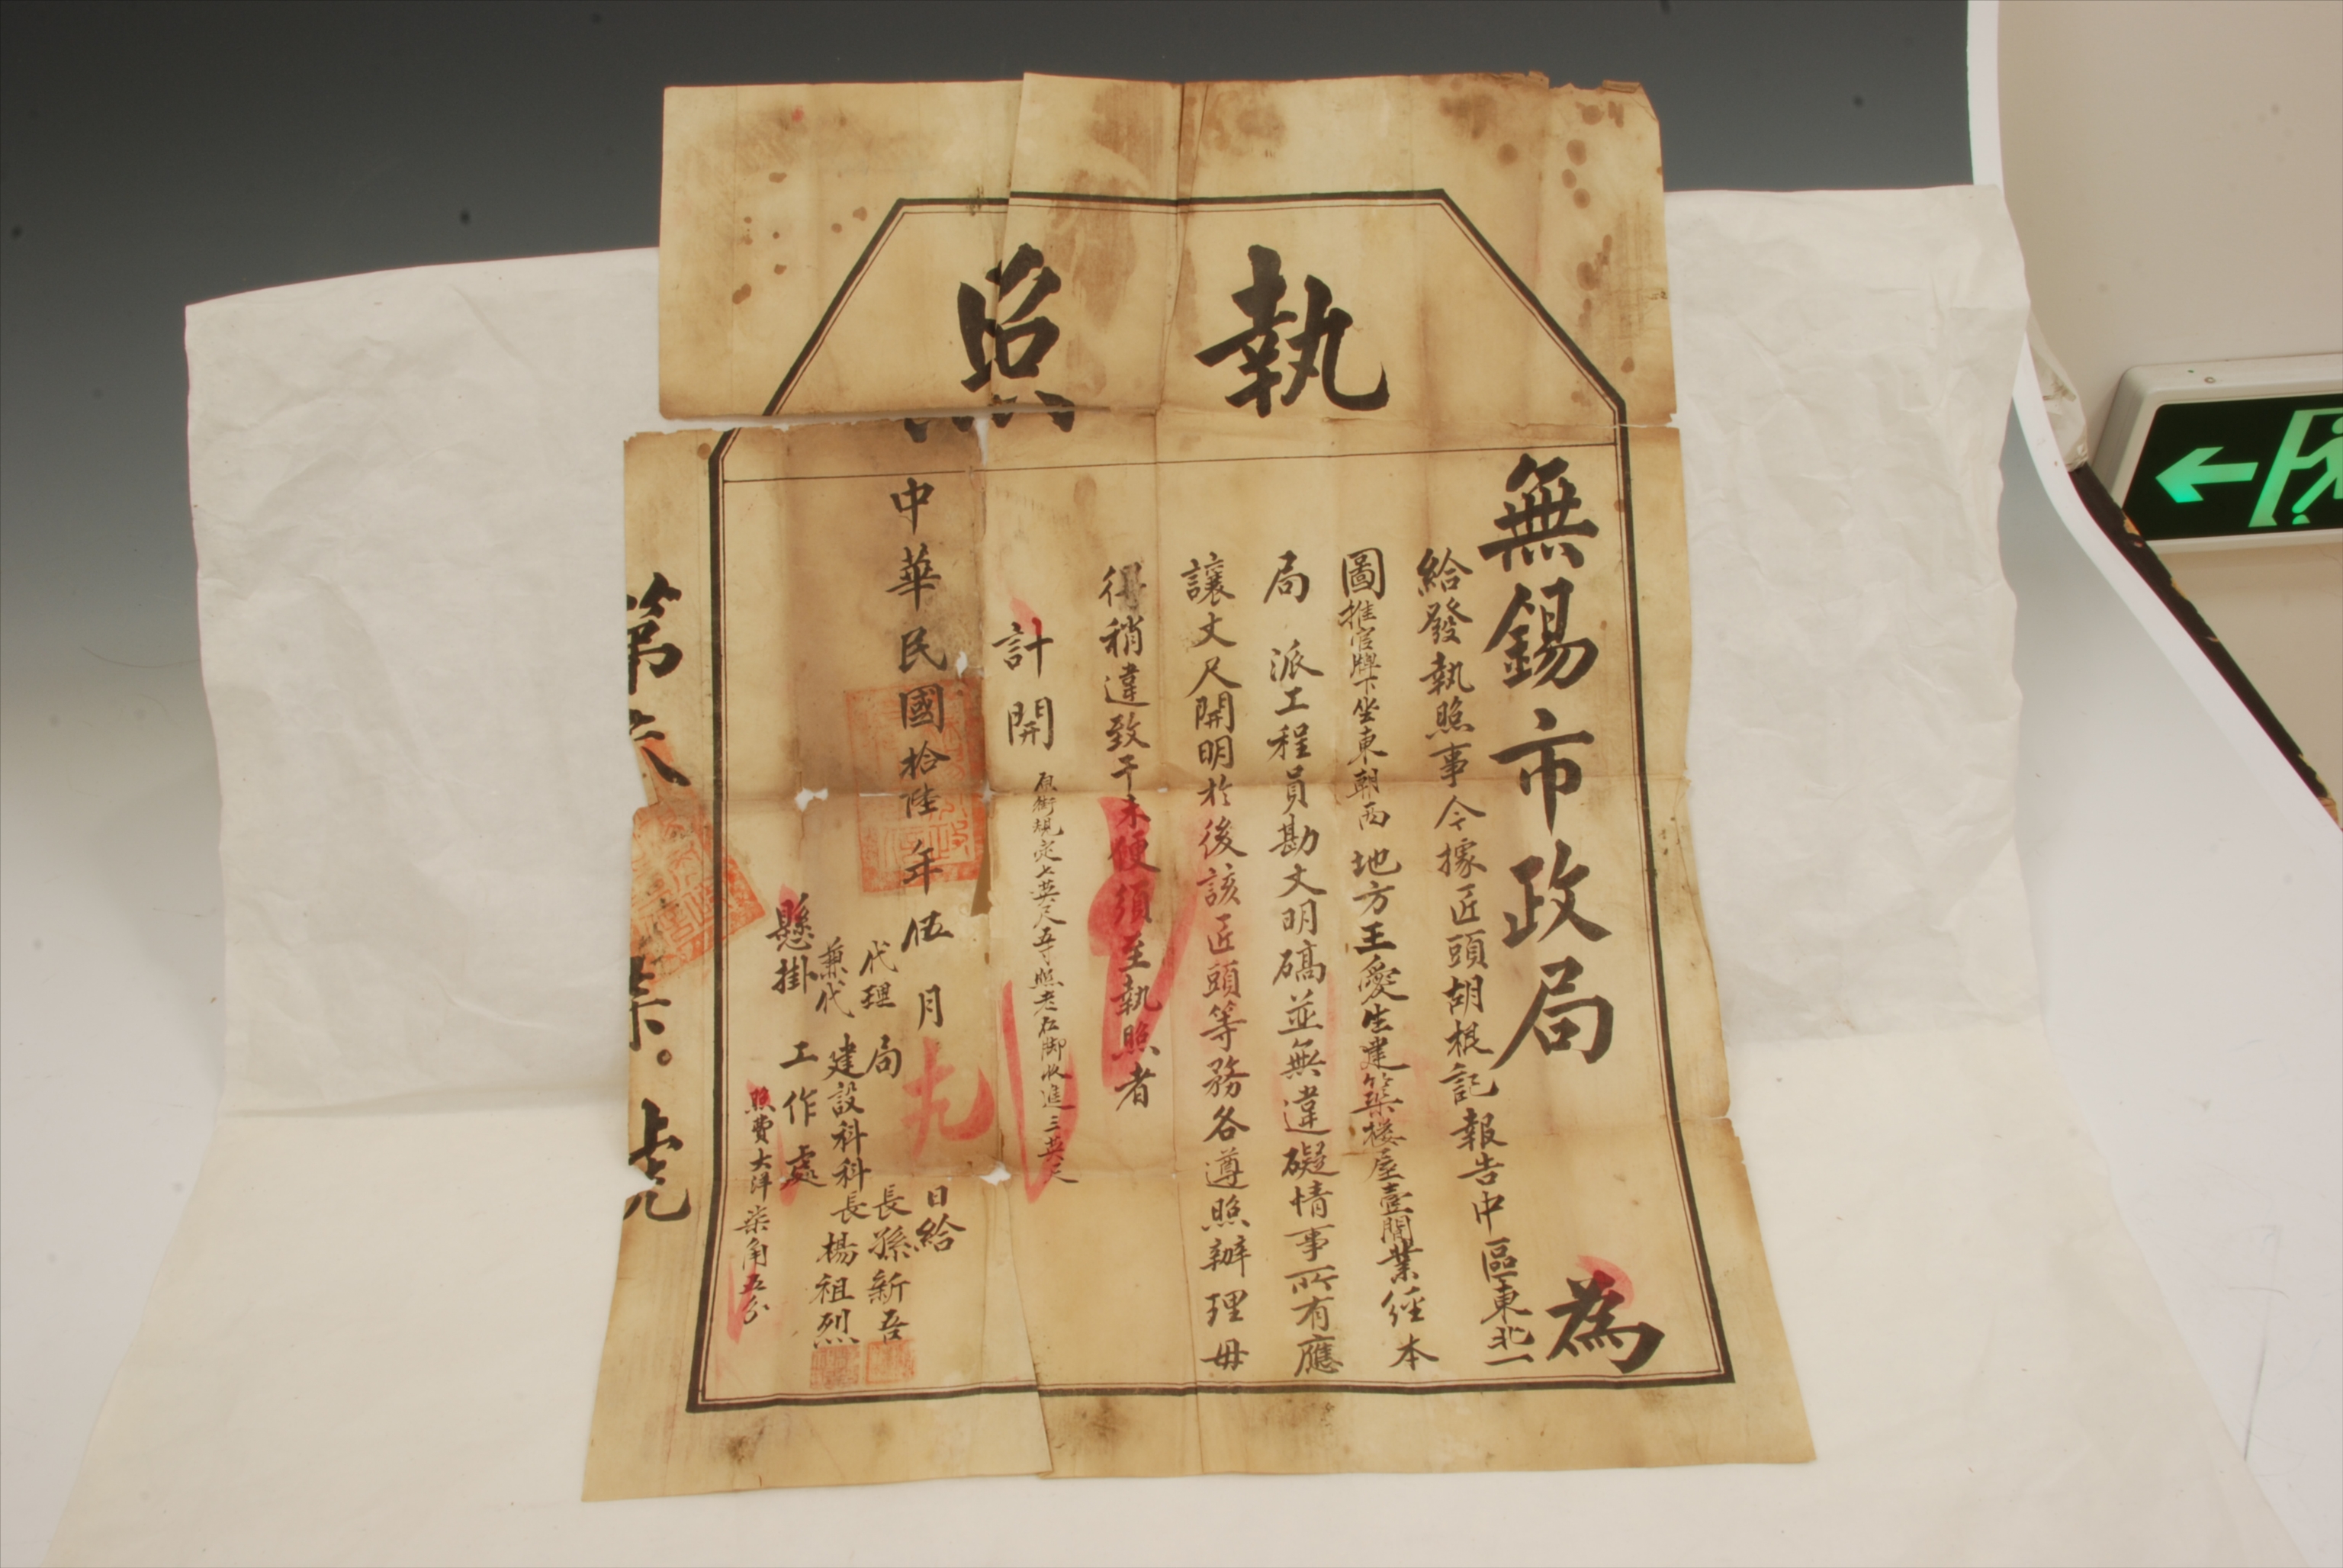 執照
無錫市政局 為
給發執照事今據匠頭胡根記報告中區東北一
圖推官牌下坐東朝西地方王愛生建築楼屋壹間業經本
局派工程員勘丈明礄並無違礙情事所有應
讓丈尺開明於後該匠頭等務各遵照辦理毋
得稍違致干未便須至執照者
計開
原街規定七英尺五寸照老石脚收進三英尺
中華民國拾陸年伍月九日給
代理局長孫新吾
兼代建設科科長楊祖烈
懸掛工作處
照費大洋柒角五分
第